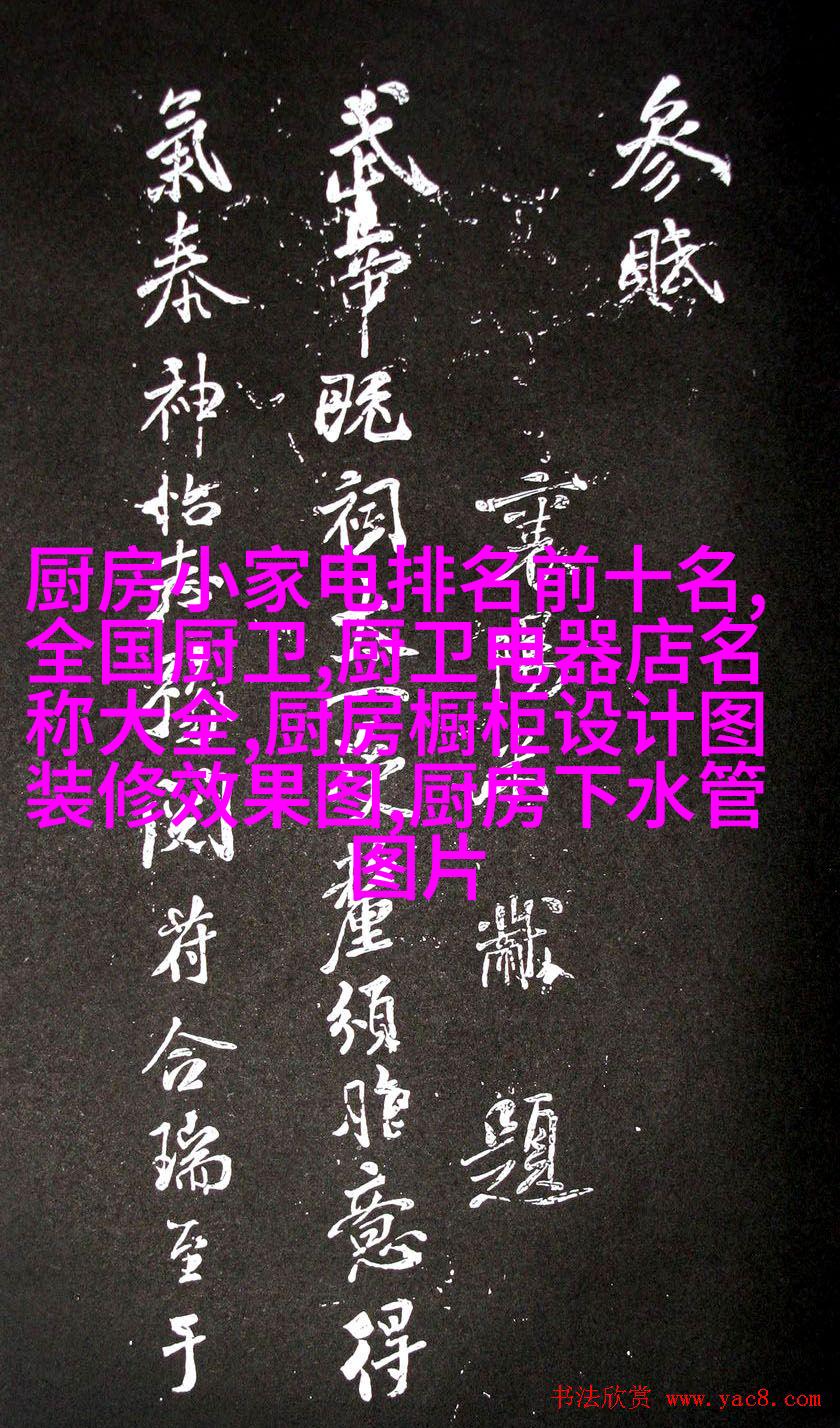 參賦
襄陽米黻題
武帝既祠五受釐意得
氣泰神怡閱符合瑞至于
厨房小家电排名前十名,
全国厨卫,厨卫电器店名
称大全,厨房橱柜设计图
装修效果图,厨房下水管
图片
书法欣赏 www.yac8.com